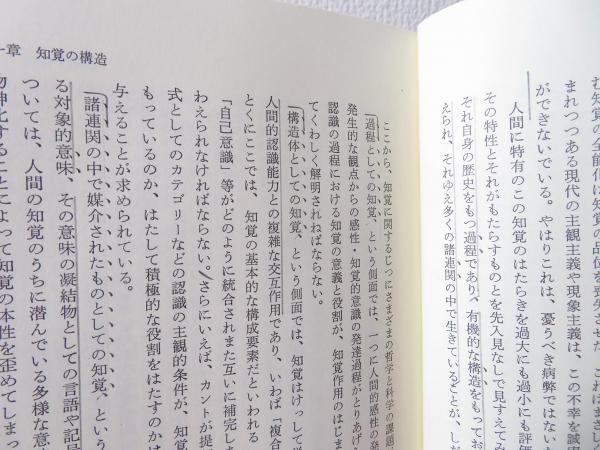 む知覚の全能化は知覚の品位を喪失さ
まれつつある現代の主観主義や現象主義は、この不幸を誠実
ができないでいる。やはりこれは、憂うべき病弊ではない
人間に特有のこの知覚のはたらきを過大にも過小にも評価
その特性とそれがもたらすものとを先入見なしで見すえてみ
それ自身の歴史をもつ過程であり、有機的な構造をもってお
えられ、それゆえ多くの諸連関の中で生きていることが、しだ
一章 知覚の構造
ここから、知覚に関するじつにさまざまの哲学と科学の課題
過程としての知覚、という側面では、一つに人間的感性の発
発生的な観点からの感性・知覚的意識の発達過程がとりあげ
認識の過程における知覚の意義と役割が、知覚作用のはじま
てくわしく解明されねばならない。
構造体としての知覚、という側面では、知覚はけっして
人間的認識能力との複雑な交互作用であり、いわば「複合
とくにここでは、知覚の基本的な構成要素だといわれる
「自己意識」等がどのように統合されまた互いに補完し
わえられなければならない。さらにいえば、カントが提
式としてのカテゴリーなどの認識の主観的条件が、知覚
もっているのか、はたして積極的な役割をはたすのか
与えることが求められている。
諸連関の中で媒介されたものとしての知覚、という
る対象的意味、その意味の凝結物としての言語や記号
ついては、人間の知覚のうちに潜んでいる多様な意
物神化することによって知覚の本性を歪めてしまっ